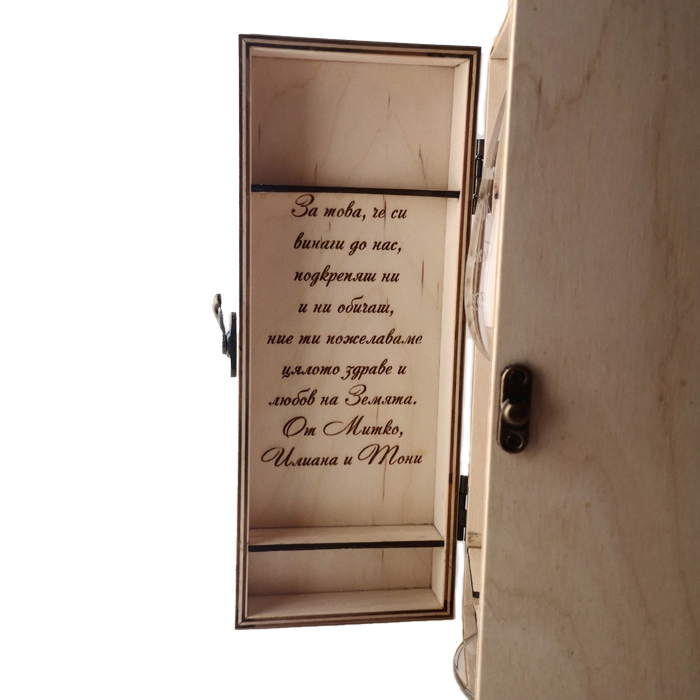 За това, че си
винаги до нас,
подкрепяш ни
и ни обичаш,
ние ти пожелаваме
цялото здраве и
любов на Земята.
От Митко,
Илиана и Тони